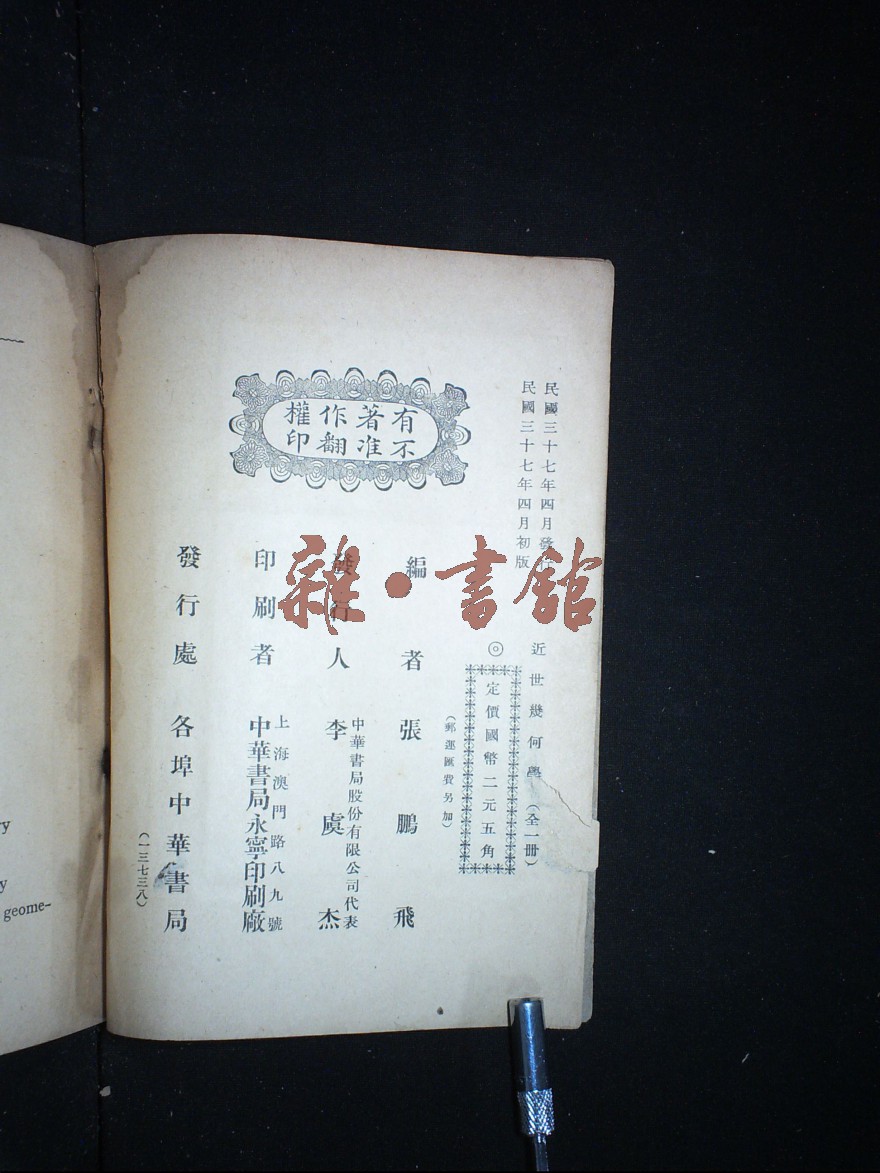 民國三十七年四月發行
民國三十七年四月初版
近世幾何學(全一冊)
◎定價國幣二元五角
(郵運匯費另加)
有著作權
不准翻印
編者 張鵬飛
發行人 李虞杰
中華書局股份有限公司代表
印刷者 中華書局永寧印刷廠
上海澳門路八九號
發行處 各埠中華書局
(一三七三八)
雜·書館
ry
y
geome-